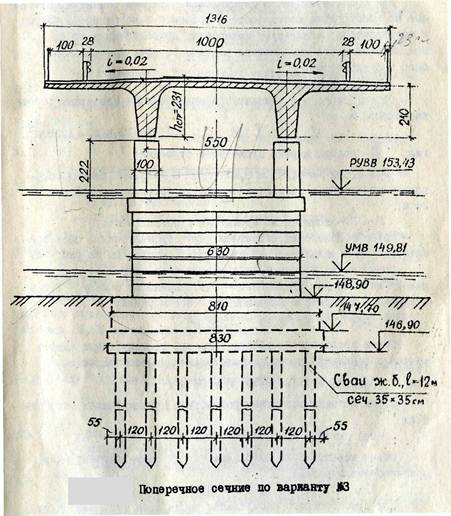 1316
100 28 1000 28 100
i=0,02 i=0,02
hоп=231
210
550
222
100
РУВВ 153,43
УМВ 149,81
630
148,90
810
147,70
146,90
830
Сваи ж.б., l=12м
сеч. 35×35см
55 120 120 120 120 120 120 55
Поперечное сечние по варианту №3